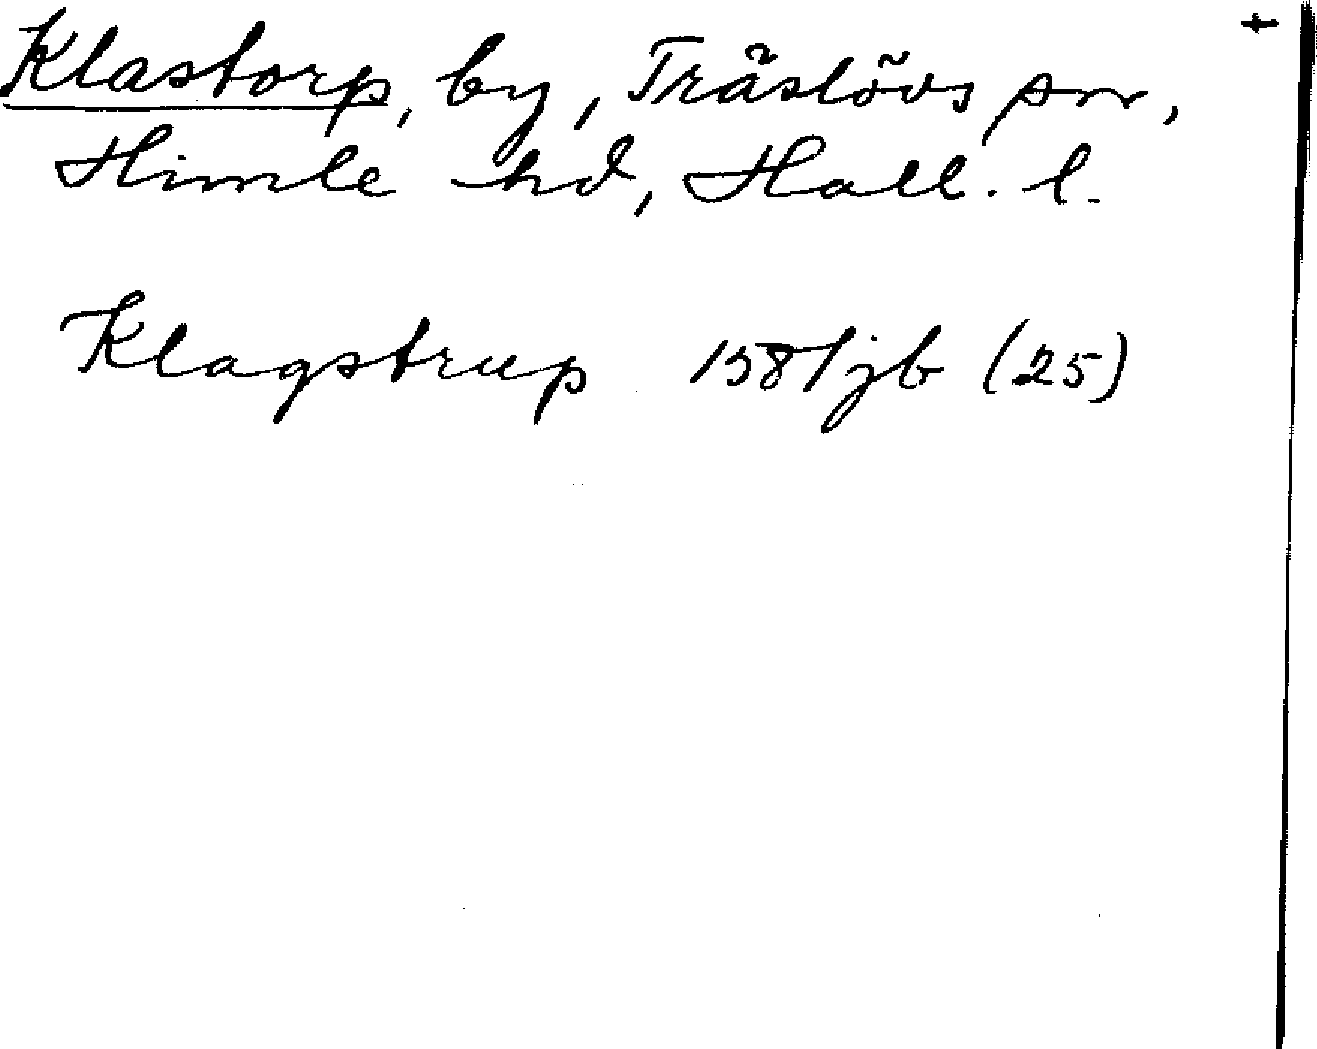 Klastorp, by, Träslövs sn,
Himle hd, Hall. l.
Klagstrup 1581 jb (25)